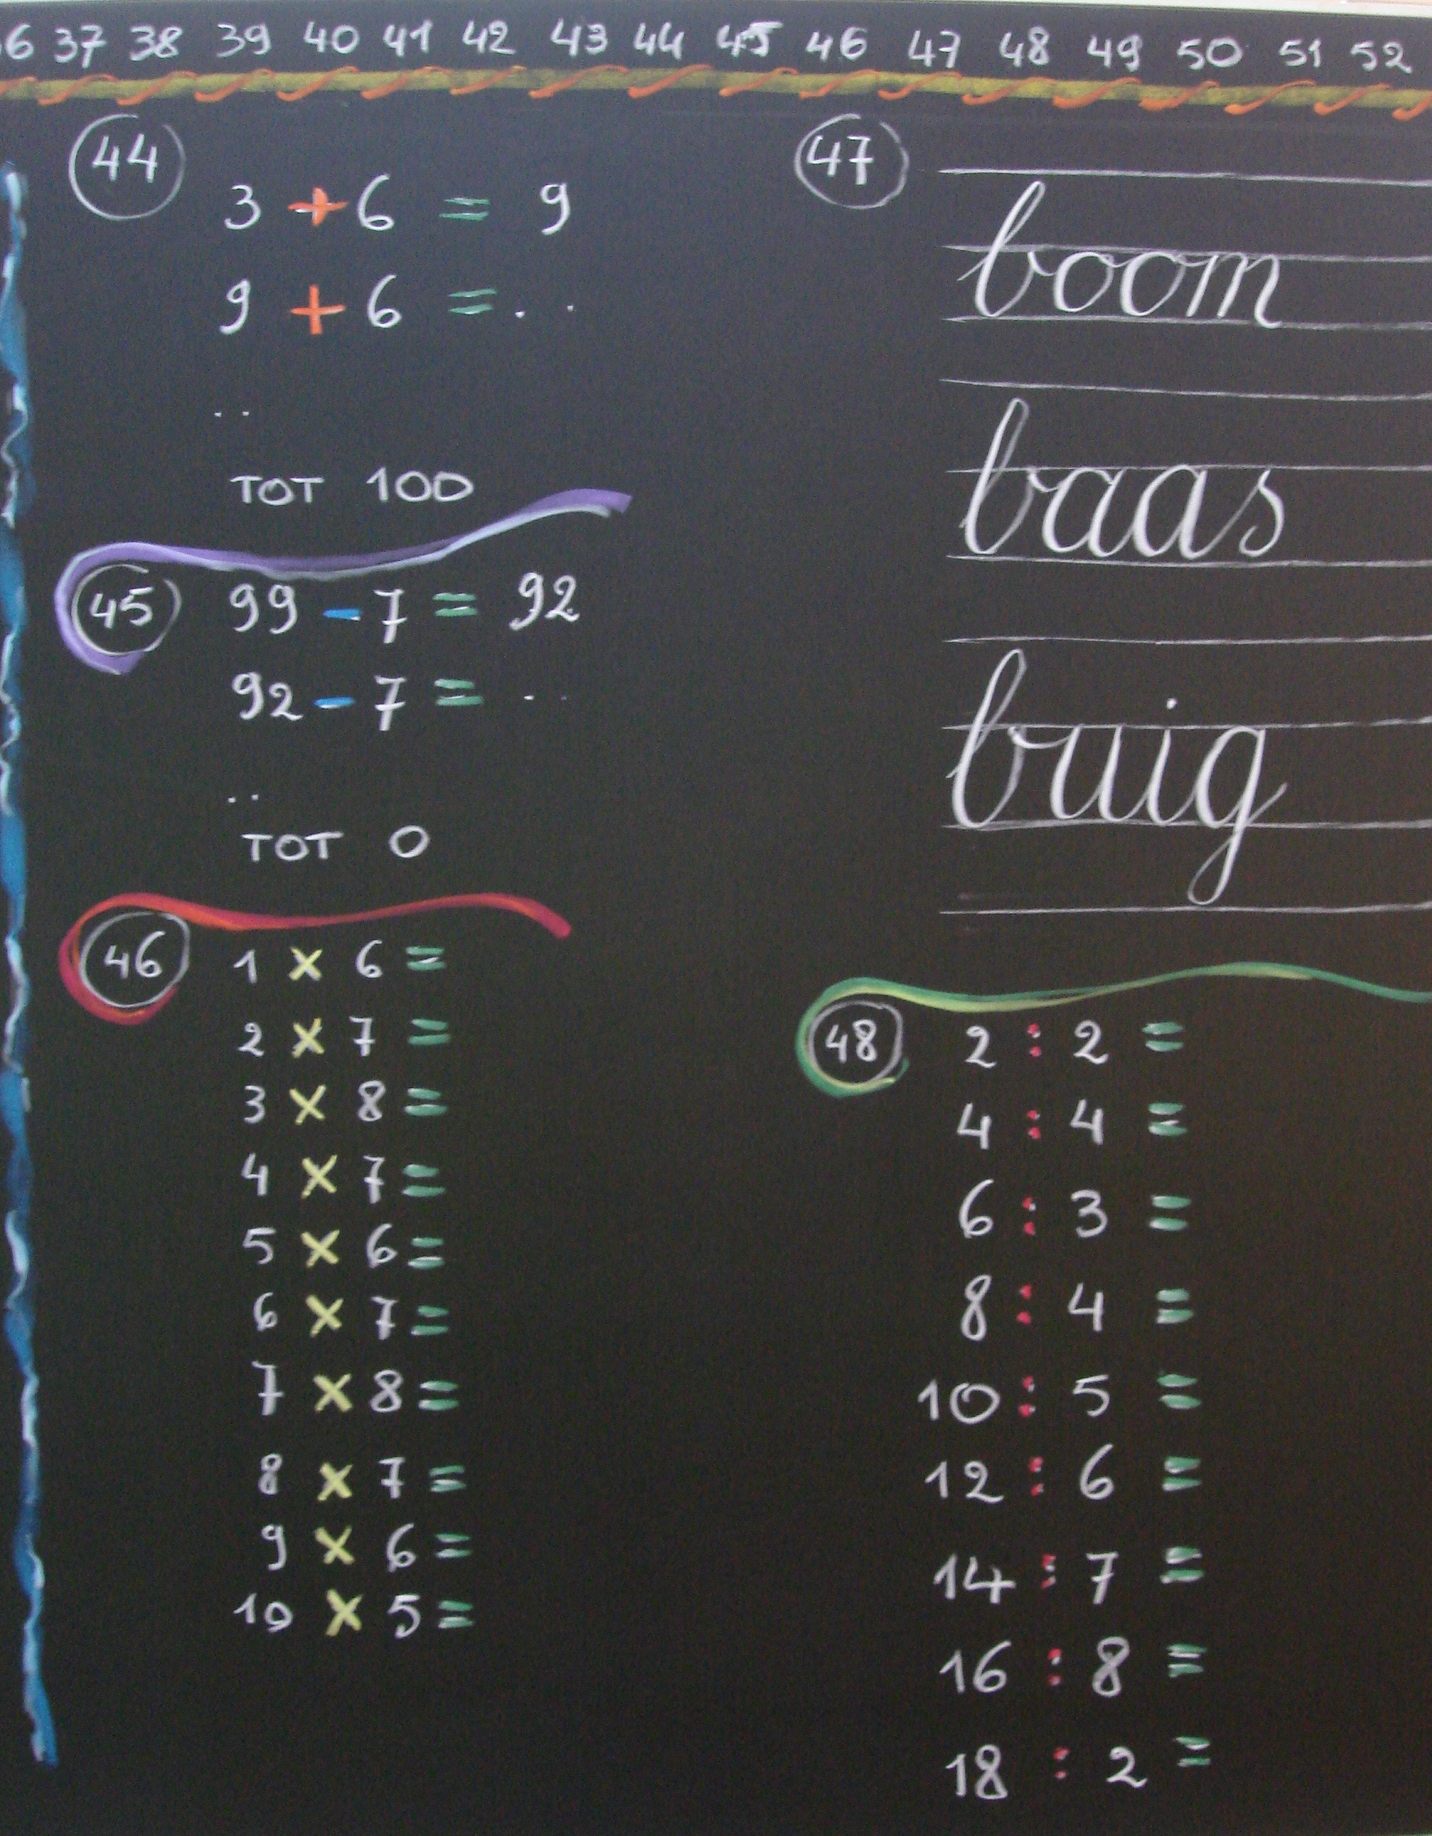 37 38 39 40 41 42 43 44 45 46 47 48 49 50 51 52
44
3 + 6 = 9
9 + 6 = ..
..
TOT 100
45
99 - 7 = 92
92 - 7 = ..
..
TOT 0
46
1 x 6 =
2 x 7 =
3 x 8 =
4 x 7 =
5 x 6 =
6 x 7 =
7 x 8 =
8 x 7 =
9 x 6 =
10 x 5 =
47
boom
baas
bruig
48
2 : 2 =
4 : 4 =
6 : 3 =
8 : 4 =
10 : 5 =
12 : 6 =
14 : 7 =
16 : 8 =
18 : 2 =